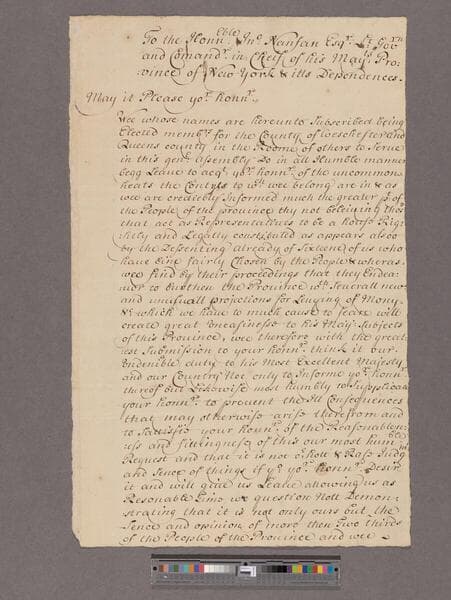 To the Honn:^ble Jn:^o Nanfan Esq:^r L:^t Gov:^rn
and Comand:^r in Cheif of his Maj:^ts Pro:
vince of New York & itts Dependences.
May it Please yo:^r honn:^r
Wee whose names are hereunto Subscribed being
Elected memb:^rs for the County of Westchester and
Queens county in the Roome of others to Serve
in this gen:^ll Assembly do in all Humble manner
begg Leave to acq:^t yo:^r honn:^r of the uncommon
heats the Contrys to w:^ch wee belong are in & as
wee are credibly Informed much the greater p:^t of
the People of the province thy not beleiving thos
that act as Representatives to be a house Rig
htly and Legally constituted as appears also
by the Dessenting already of Sixteene of us who
have bine fairly Chosen by the People & wheras
wee find by their proceedings that they Endea:
vur to burthen the Province w:^th Severall new
and unusuall projections for Leuying of Mony
& which we have to much cause to feare will
create great Uneasinesse to his Maj:^ts Subjects
of this Province, we therefore with the great
est Submission to your honn:^r think it our
Indenible duty to his Most Excellent Majesty
and our Country Not only to Informe yo:^r honn:^r
thereof but Likewise most humbly to Supplicate
your honn:^r to prevent the Ill Consequences
that may otherwise arise therefrom and
to Sattisfie your honn:^r of the Reasonablen:
ess and fittingness of this our most hum^ble
Request and that it is not o:^r hott & Rash Judg
and Sence of things if y:^e yo:^r honn:^r Desire
it and will give us Leave allowing us as
Resonable time we question Nott Demon:
strating that it is not only ours but the
Sence and opinion of more then two thirds
of the People of the Province and wee